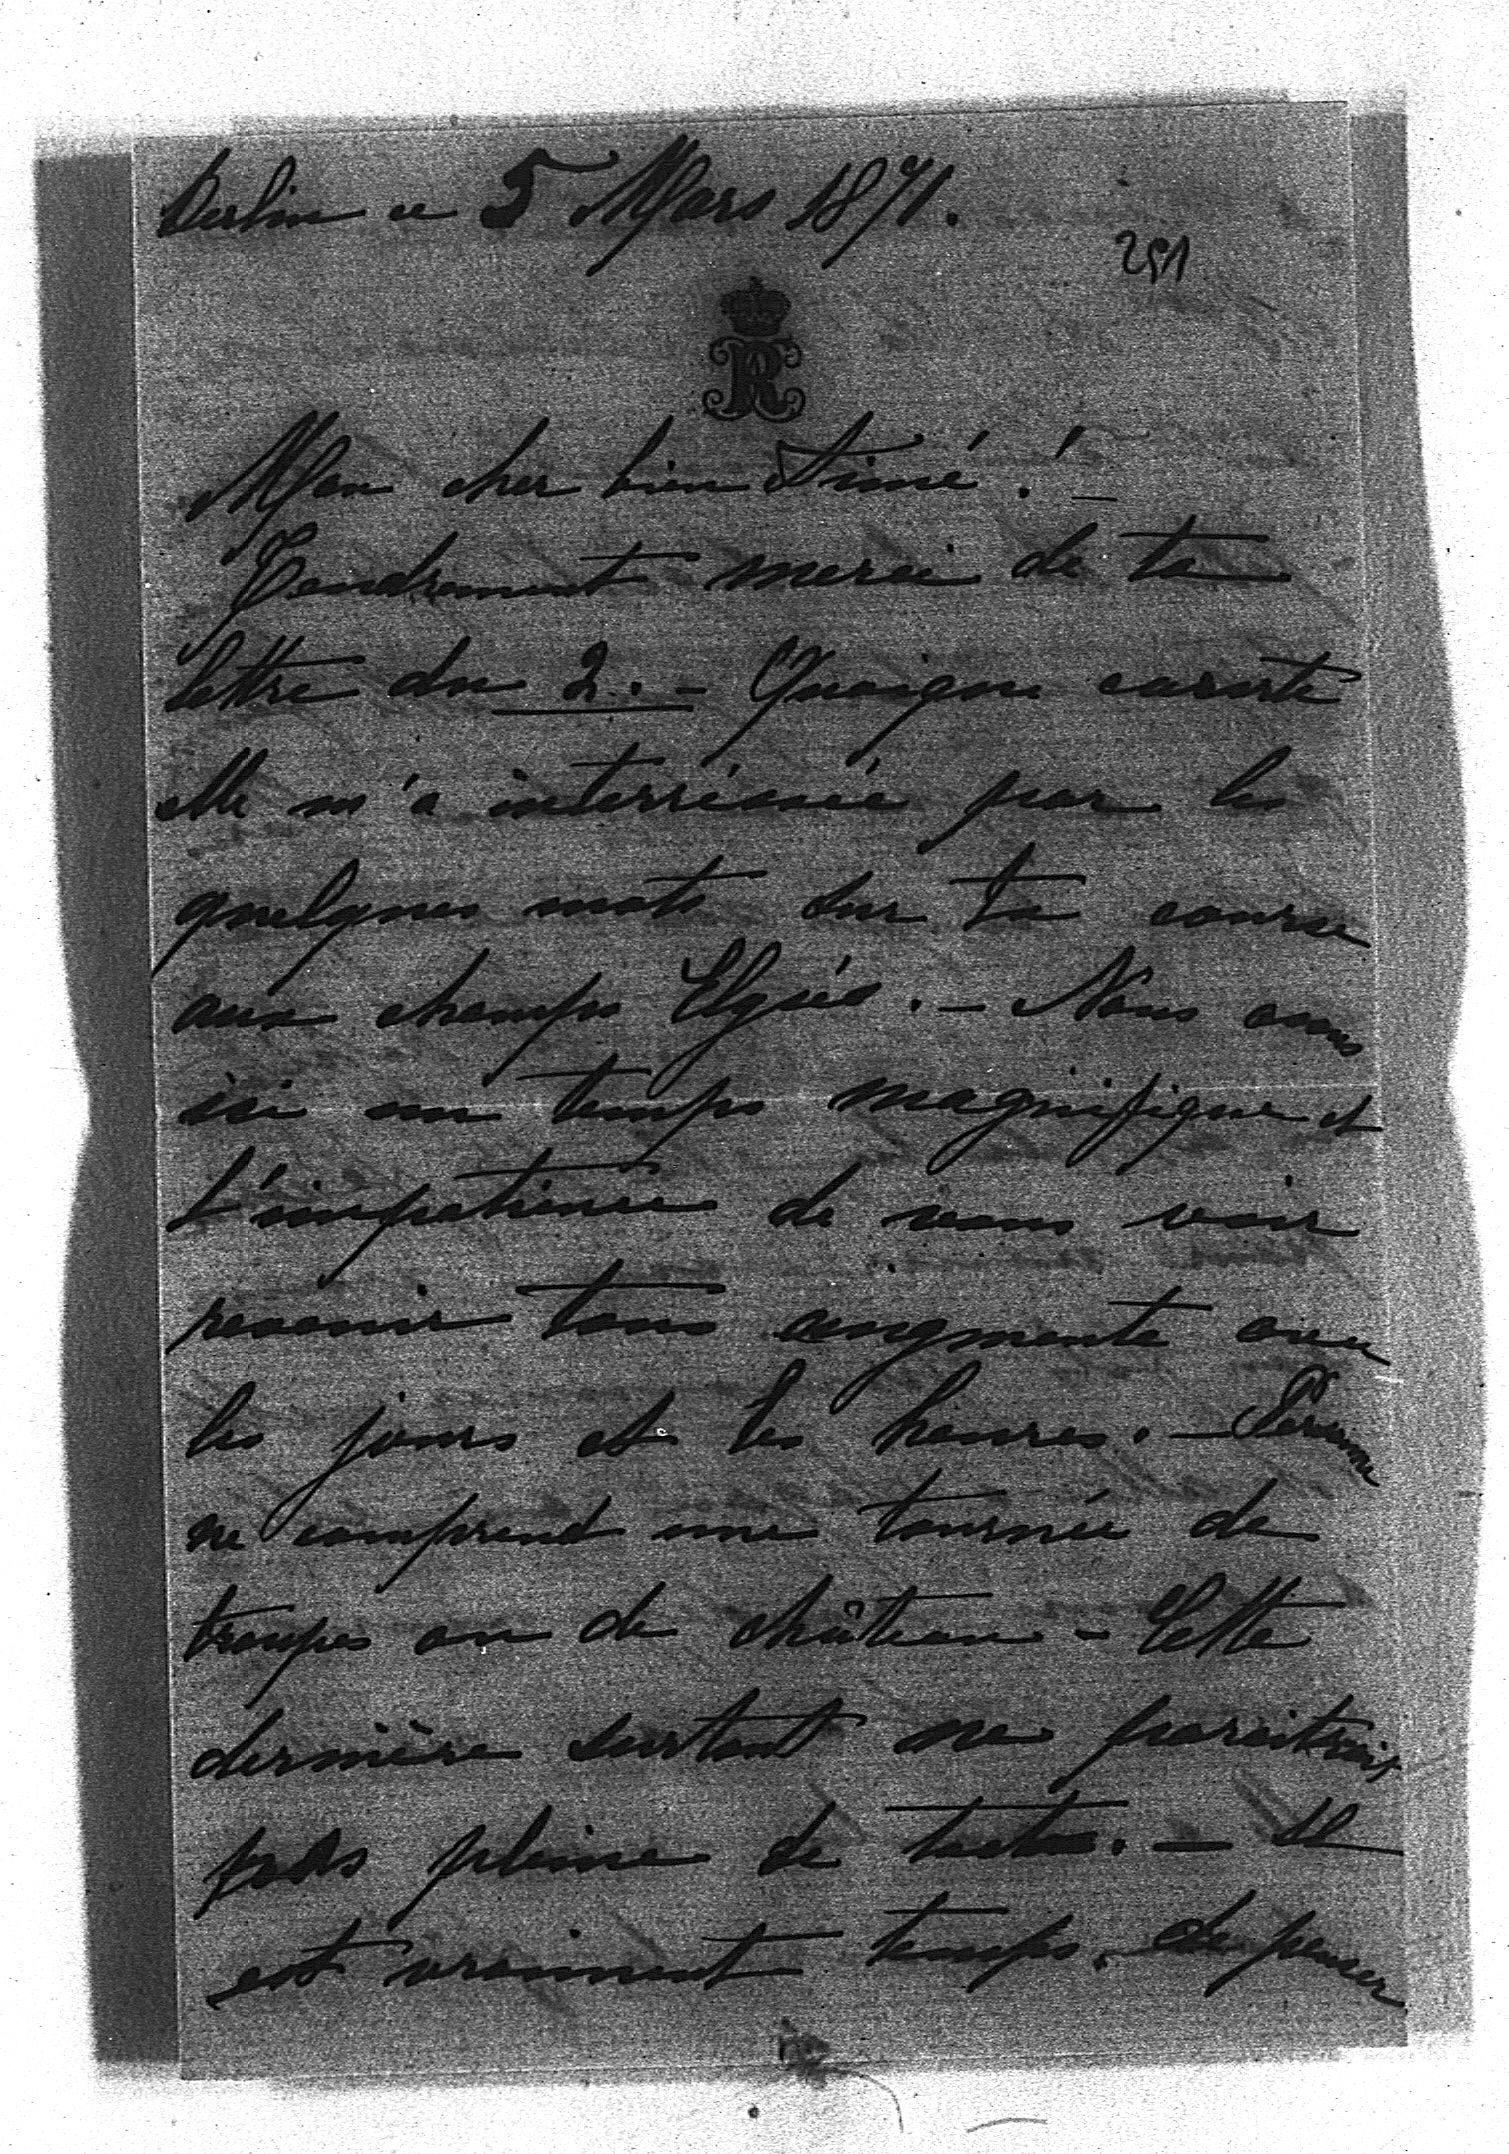 Berlin ce 5 Mars 1871.
251
R
Mon cher bien Aimé! -
Tendrement merci de ta
lettre du 2. - Quoique courte
elle m'a interréssée par les
quelques mots sur ta course
aux champs Elysés. - Nous avons
ici un temps magnifique et
l'impatience de vous voir
revenir tous augmente avec
les jours et les heures. - Personne
ne comprend une tournée de
troupes ou de château - Cette
dernière surtout ne paraitrait
pas pleine de tact. - Il
est vraiment temps de penser